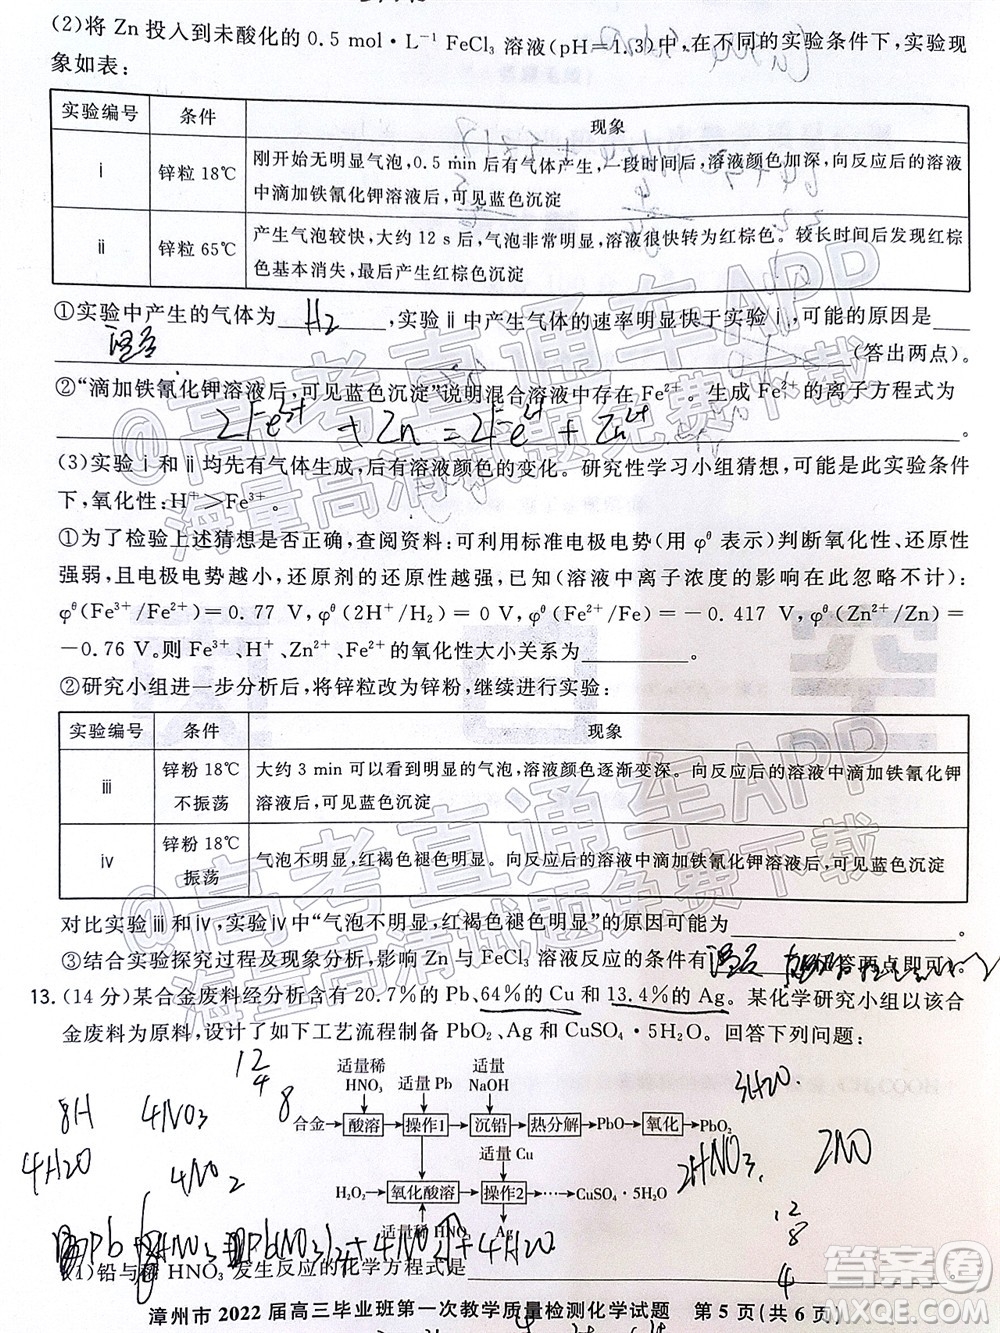 (2)将 Zn 投入到未酸化的 0.5 mol·L⁻¹ FeCl₃ 溶液(pH=1.3)中,在不同的实验条件下,实验现
象如表:
实验编号 条件 现象
ⅰ 锌粒 18℃ 刚开始无明显气泡,0.5 min 后有气体产生,一段时间后,溶液颜色加深,向反应后的溶液
中滴加铁氰化钾溶液后,可见蓝色沉淀
ⅱ 锌粒 65℃ 产生气泡较快,大约 12 s 后,气泡非常明显,溶液很快转为红棕色。较长时间后发现红
棕色基本消失,最后产生红棕色沉淀
①实验中产生的气体为 H2 ,实验ⅱ中产生气体的速率明显快于实验ⅰ,可能的原因是
温度 (答出两点)。
②“滴加铁氰化钾溶液后,可见蓝色沉淀”说明混合溶液中存在 Fe²⁺。生成 Fe²⁺的离子方程式为
2Fe³⁺ + Zn = 2Fe²⁺ + Zn²⁺ 。
(3)实验ⅰ和ⅱ均先有气体生成,后有溶液颜色的变化。研究性学习小组猜想,可能是此实验条件
下,氧化性:H⁺>Fe³⁺。
①为了检验上述猜想是否正确,查阅资料:可利用标准电极电势(用 φ^θ 表示)判断氧化性、还原性
强弱,且电极电势越小,还原剂的还原性越强,已知(溶液中离子浓度的影响在此忽略不计):
φ^θ(Fe³⁺/Fe²⁺)=0.77 V,φ^θ(2H⁺/H₂)=0 V,φ^θ(Fe²⁺/Fe)=－0.417 V,φ^θ(Zn²⁺/Zn)=
－0.76 V.则 Fe³⁺、H⁺、Zn²⁺、Fe²⁺的氧化性大小关系为 。
②研究小组进一步分析后,将锌粒改为锌粉,继续进行实验:
实验编号 条件 现象
ⅲ 锌粉 18℃ 不振荡 大约 3 min 可以看到明显的气泡,溶液颜色逐渐变深。向反应后的溶液中滴加铁氰化钾
溶液后,可见蓝色沉淀
ⅳ 锌粉 18℃ 振荡 气泡不明显,红褐色褪色明显。向反应后的溶液中滴加铁氰化钾溶液后,可见蓝色沉淀
对比实验ⅲ和ⅳ,实验ⅳ中“气泡不明显,红褐色褪色明显”的原因可能为 。
③结合实验探究过程及现象分析,影响 Zn 与 FeCl₃ 溶液反应的条件有 温度 答两点即可)。
13.(14 分)某合金废料经分析含有 20.7%的 Pb、64%的 Cu 和 13.4%的 Ag。某化学研究小组以该合
金废料为原料,设计了如下工艺流程制备 PbO₂、Ag 和 CuSO₄·5H₂O。回答下列问题:
12
4
适量稀 HNO₃ 适量 Pb 适量 NaOH
3H2O
8H 4NO3 8
合金 酸溶 操作1 沉铅 热分解 PbO 氧化 PbO₂
适量 Cu
4H2O 4NO2 2HNO3 2NO
H₂O₂ 氧化酸溶 操作2 … CuSO₄·5H₂O
适量稀 HNO₃ Ag
12
8
4
Pb HNO3 = Pb(NO3)2 + 4NO2↑ + 4H2O
(1)铅与稀 HNO₃ 发生反应的化学方程式是 。
漳州市 2022 届高三毕业班第一次教学质量检测化学试题 第 5 页(共 6 页)
@高考直通车APP
海量高清试题免费下载
@高考直通车APP
海量高清试题免费下载
答案圈
MXQE.COM